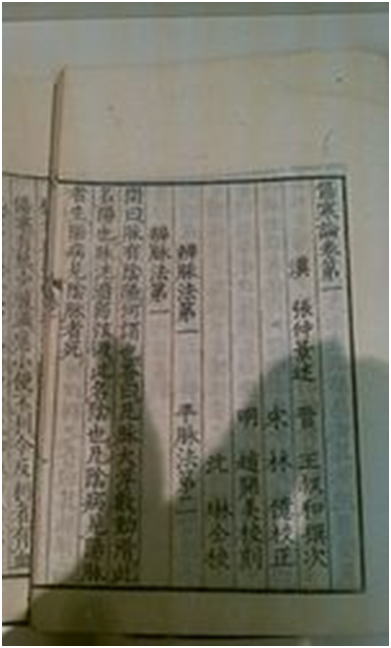 傷寒論卷第一
漢 張仲景述 晉 王叔和撰次
宋 林 億校正
明 趙開美校刻
沈 琳仝校
辨脉法第一 平脉法第二
辨脉法第一
問曰脉有陰陽何謂也荅曰凡脉大浮數動滑此
名陽也脉沈濇弱弦微此名陰也凡陰病見陽脉
者生陽病見陰脉者死
小便不利今反利者有血